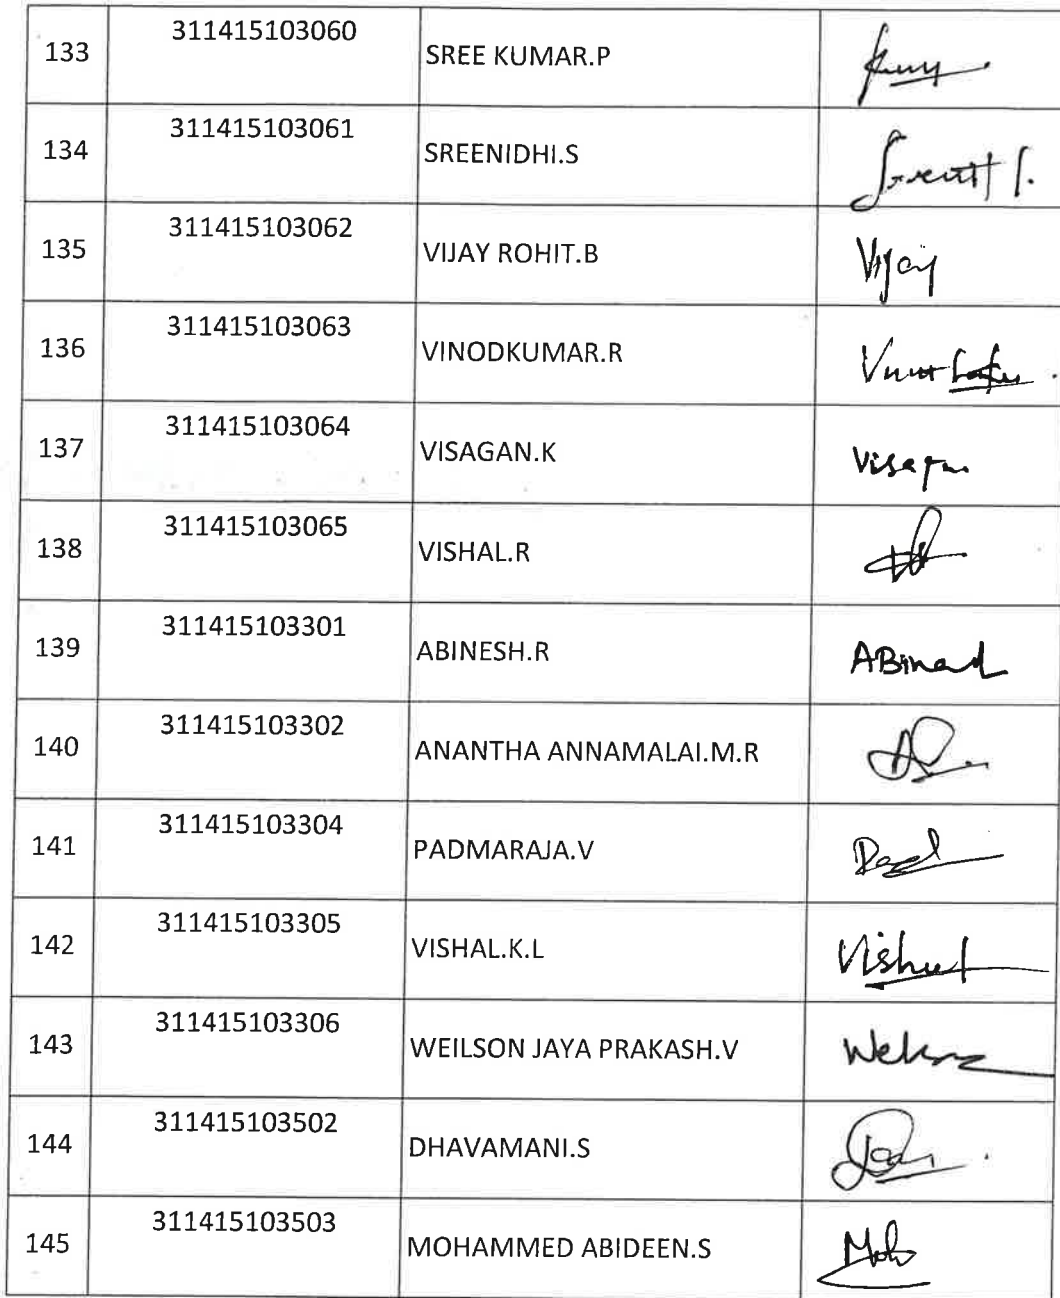 133 311415103060 SREE KUMAR.P
134 311415103061 SREENIDHI.S
135 311415103062 VIJAY ROHIT.B Vijay
136 311415103063 VINODKUMAR.R
137 311415103064 VISAGAN.K
138 311415103065 VISHAL.R
139 311415103301 ABINESH.R
140 311415103302 ANANTHA ANNAMALAI.M.R
141 311415103304 PADMARAJA.V
142 311415103305 VISHAL.K.L
143 311415103306 WEILSON JAYA PRAKASH.V
144 311415103502 DHAVAMANI.S
145 311415103503 MOHAMMED ABIDEEN.S